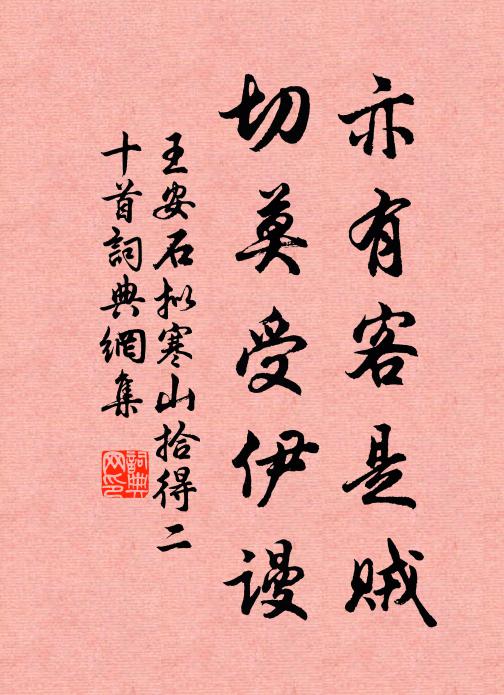 亦有客是贼
切莫受伊谩
王安石拟寒山拾得二
十首詞典網集
詞典网印